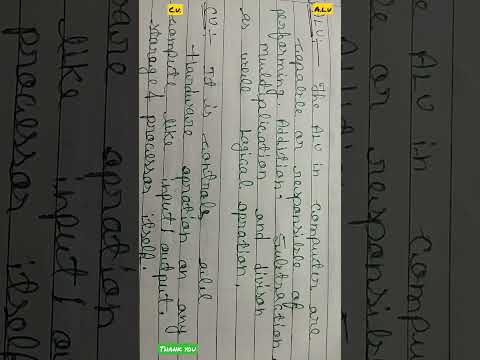 C.U.
A.L.U
ALU:- The ALU in Computer are
capable or responsible of
performing Addition, Subtraction,
multiplication and divison
as well Logical opration.
CU:- It is controls all
Hardware opration on any
compute like input/output,
storage & processor itself.
THANK YOU